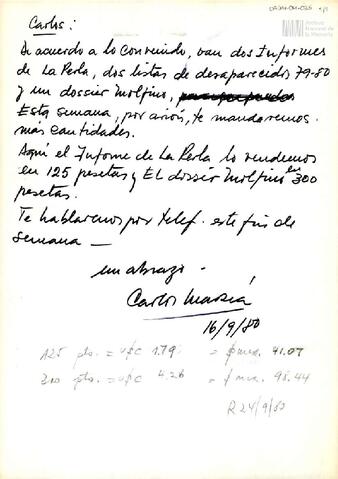 Carlos:
De acuerdo a lo convenido, van dos Informes
de La Perla, dos listas de desaparecidos 79-80
y un dossier Molfino,
Esta semana, por avión, te mandaremos
más cantidades.
Aquí el Informe de La Perla lo vendemos
en 125 pesetas y El dossier Molfino en 300
pesetas.
Te hablaremos por telef. este fin de
semana —
un abrazo -
Carlos María
16/9/80
125 pts. = u$c 1.79 = $ mex. 41.07
300 pts. = u$c 4.26 = $ mex. 98.44
R 24/9/80
Archivo
Nacional de
la Memoria